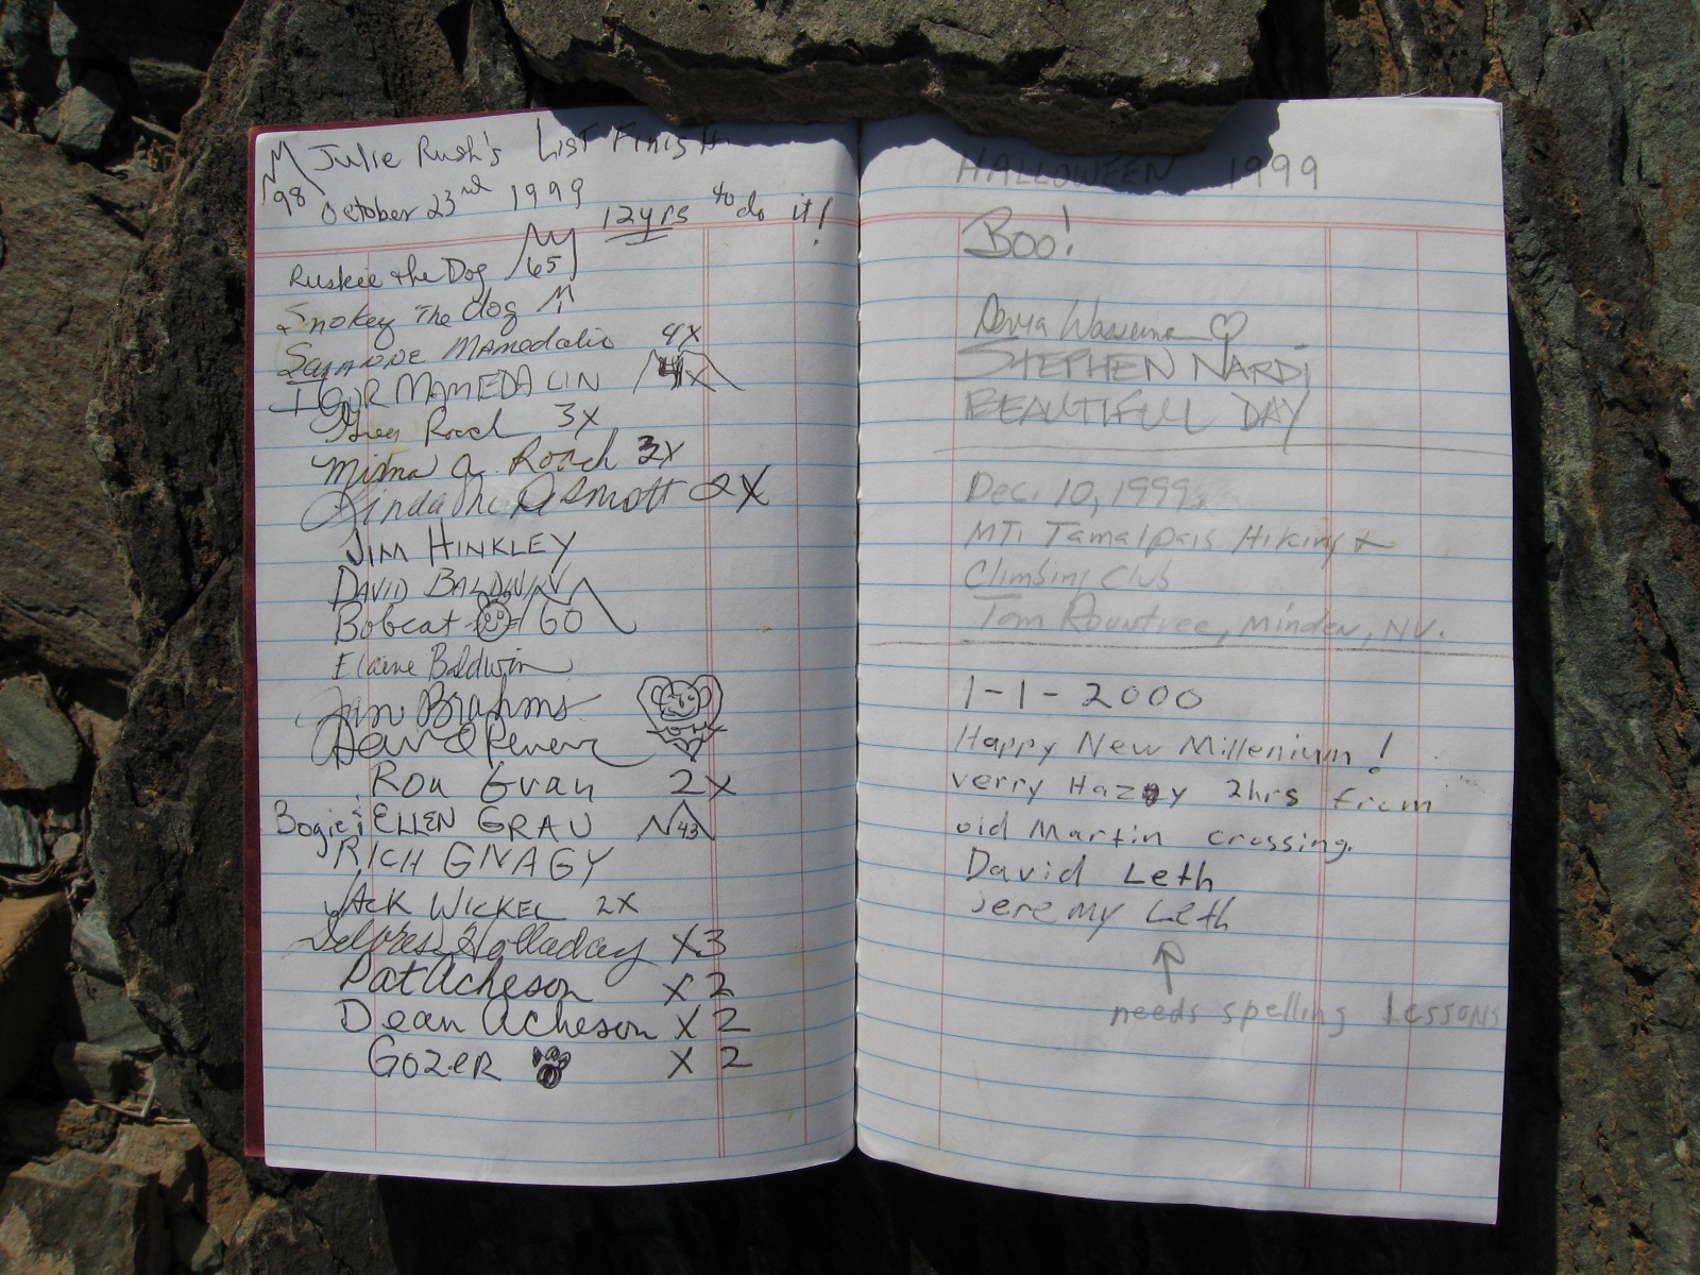 Julie Rush's LIST FINISH
98
October 23rd 1999 12yrs to do it!
Ruskee the Dog 65
Smokey The dog
4X
IGOR MAMEDALIN 4X
Greg Roach 3X
a. Roach 3X
Linda Mc Dermott 2X
JIM HINKLEY
DAVID BALDWIN
Bobcat 60
Elaine Baldwin
Jim Brahms
David
Ron Grau 2X
Bogie & ELLEN GRAU 43
RICH GNAGY
JACK WICKEL 2X
Delores Holladay X3
Pat Acheson X 2
Dean Acheson X 2
GOZER X 2
HALLOWEEN 1999
BOO!
STEPHEN NARDI
BEAUTIFUL DAY
Dec. 10, 1999
MT. Tamalpais Hiking &
Climbing Club
Tom Rountree, Minden, NV.
1-1-2000
Happy New Millenium!
verry Hazy 2hrs from
old Martin crossing.
David Leth
Jeremy Leth
needs spelling lessons